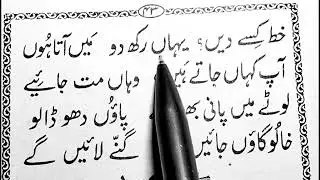 ۴۳
خط کِسے دیں؟ یہاں رکھ دو مَیں آتا ہُوں
آپ کہاں جاتے ہَیں وہاں مت جائیے
لوٹے میں پانی پاؤں دھو ڈالو
خالُو گاؤں جائیں گنّے لائیں گے